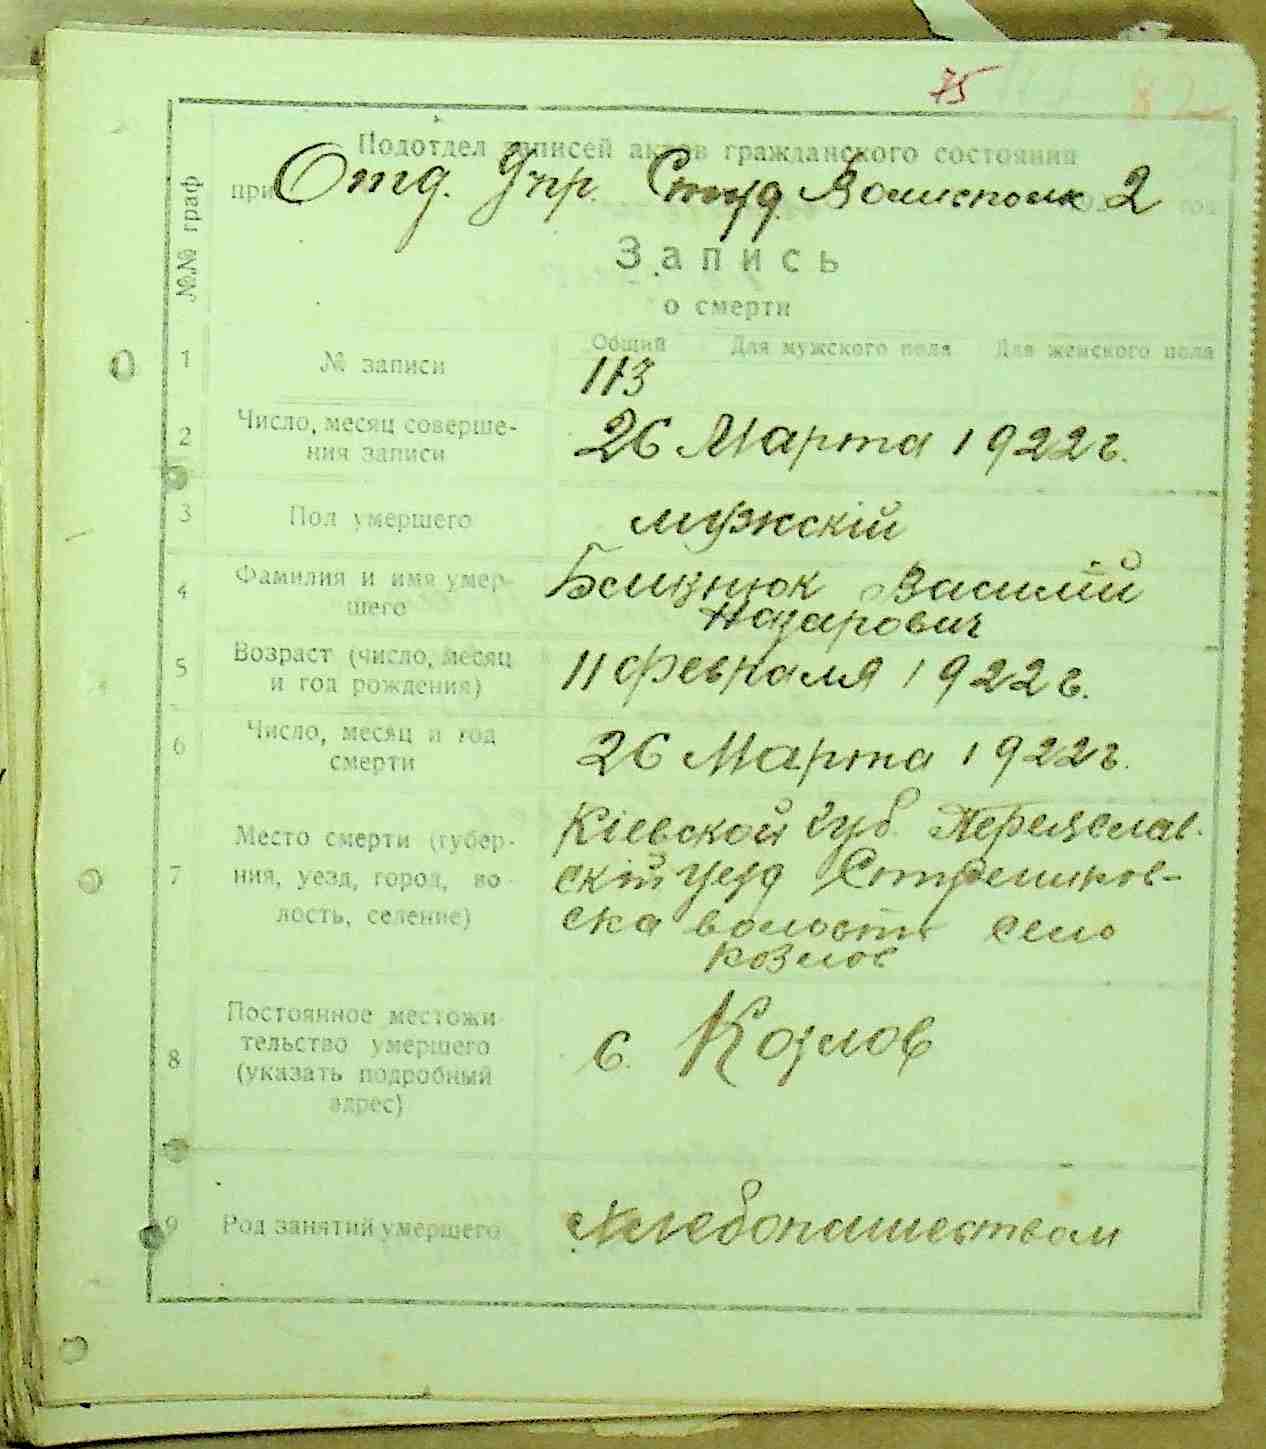 75
Подотдел записей актов гражданского состояния
при Отд. Упр. Студ. Волисполк 2 год
№№ граф
Запись
о смерти
1 № записи Общий Для мужского пола Для женского пола
113
2 Число, месяц соверше-
ния записи
26 Марта 1922 г.
3 Пол умершего мужскій
4 Фамилия и имя умер-
шего
Василій
Назарович
5 Возраст (число, месяц
и год рождения)
11 февраля 1922 г.
6 Число, месяц и год
смерти
26 Марта 1922 г.
7 Место смерти (губер-
ния, уезд, город, во-
лость, селение)
Кіевской губ. Переяслав-
скій уезд
ска волость село
Козлов
8 Постоянное местожи-
тельство умершего
(указать подробный
адрес)
с. Козлов
9 Род занятий умершего Хлебопашеством